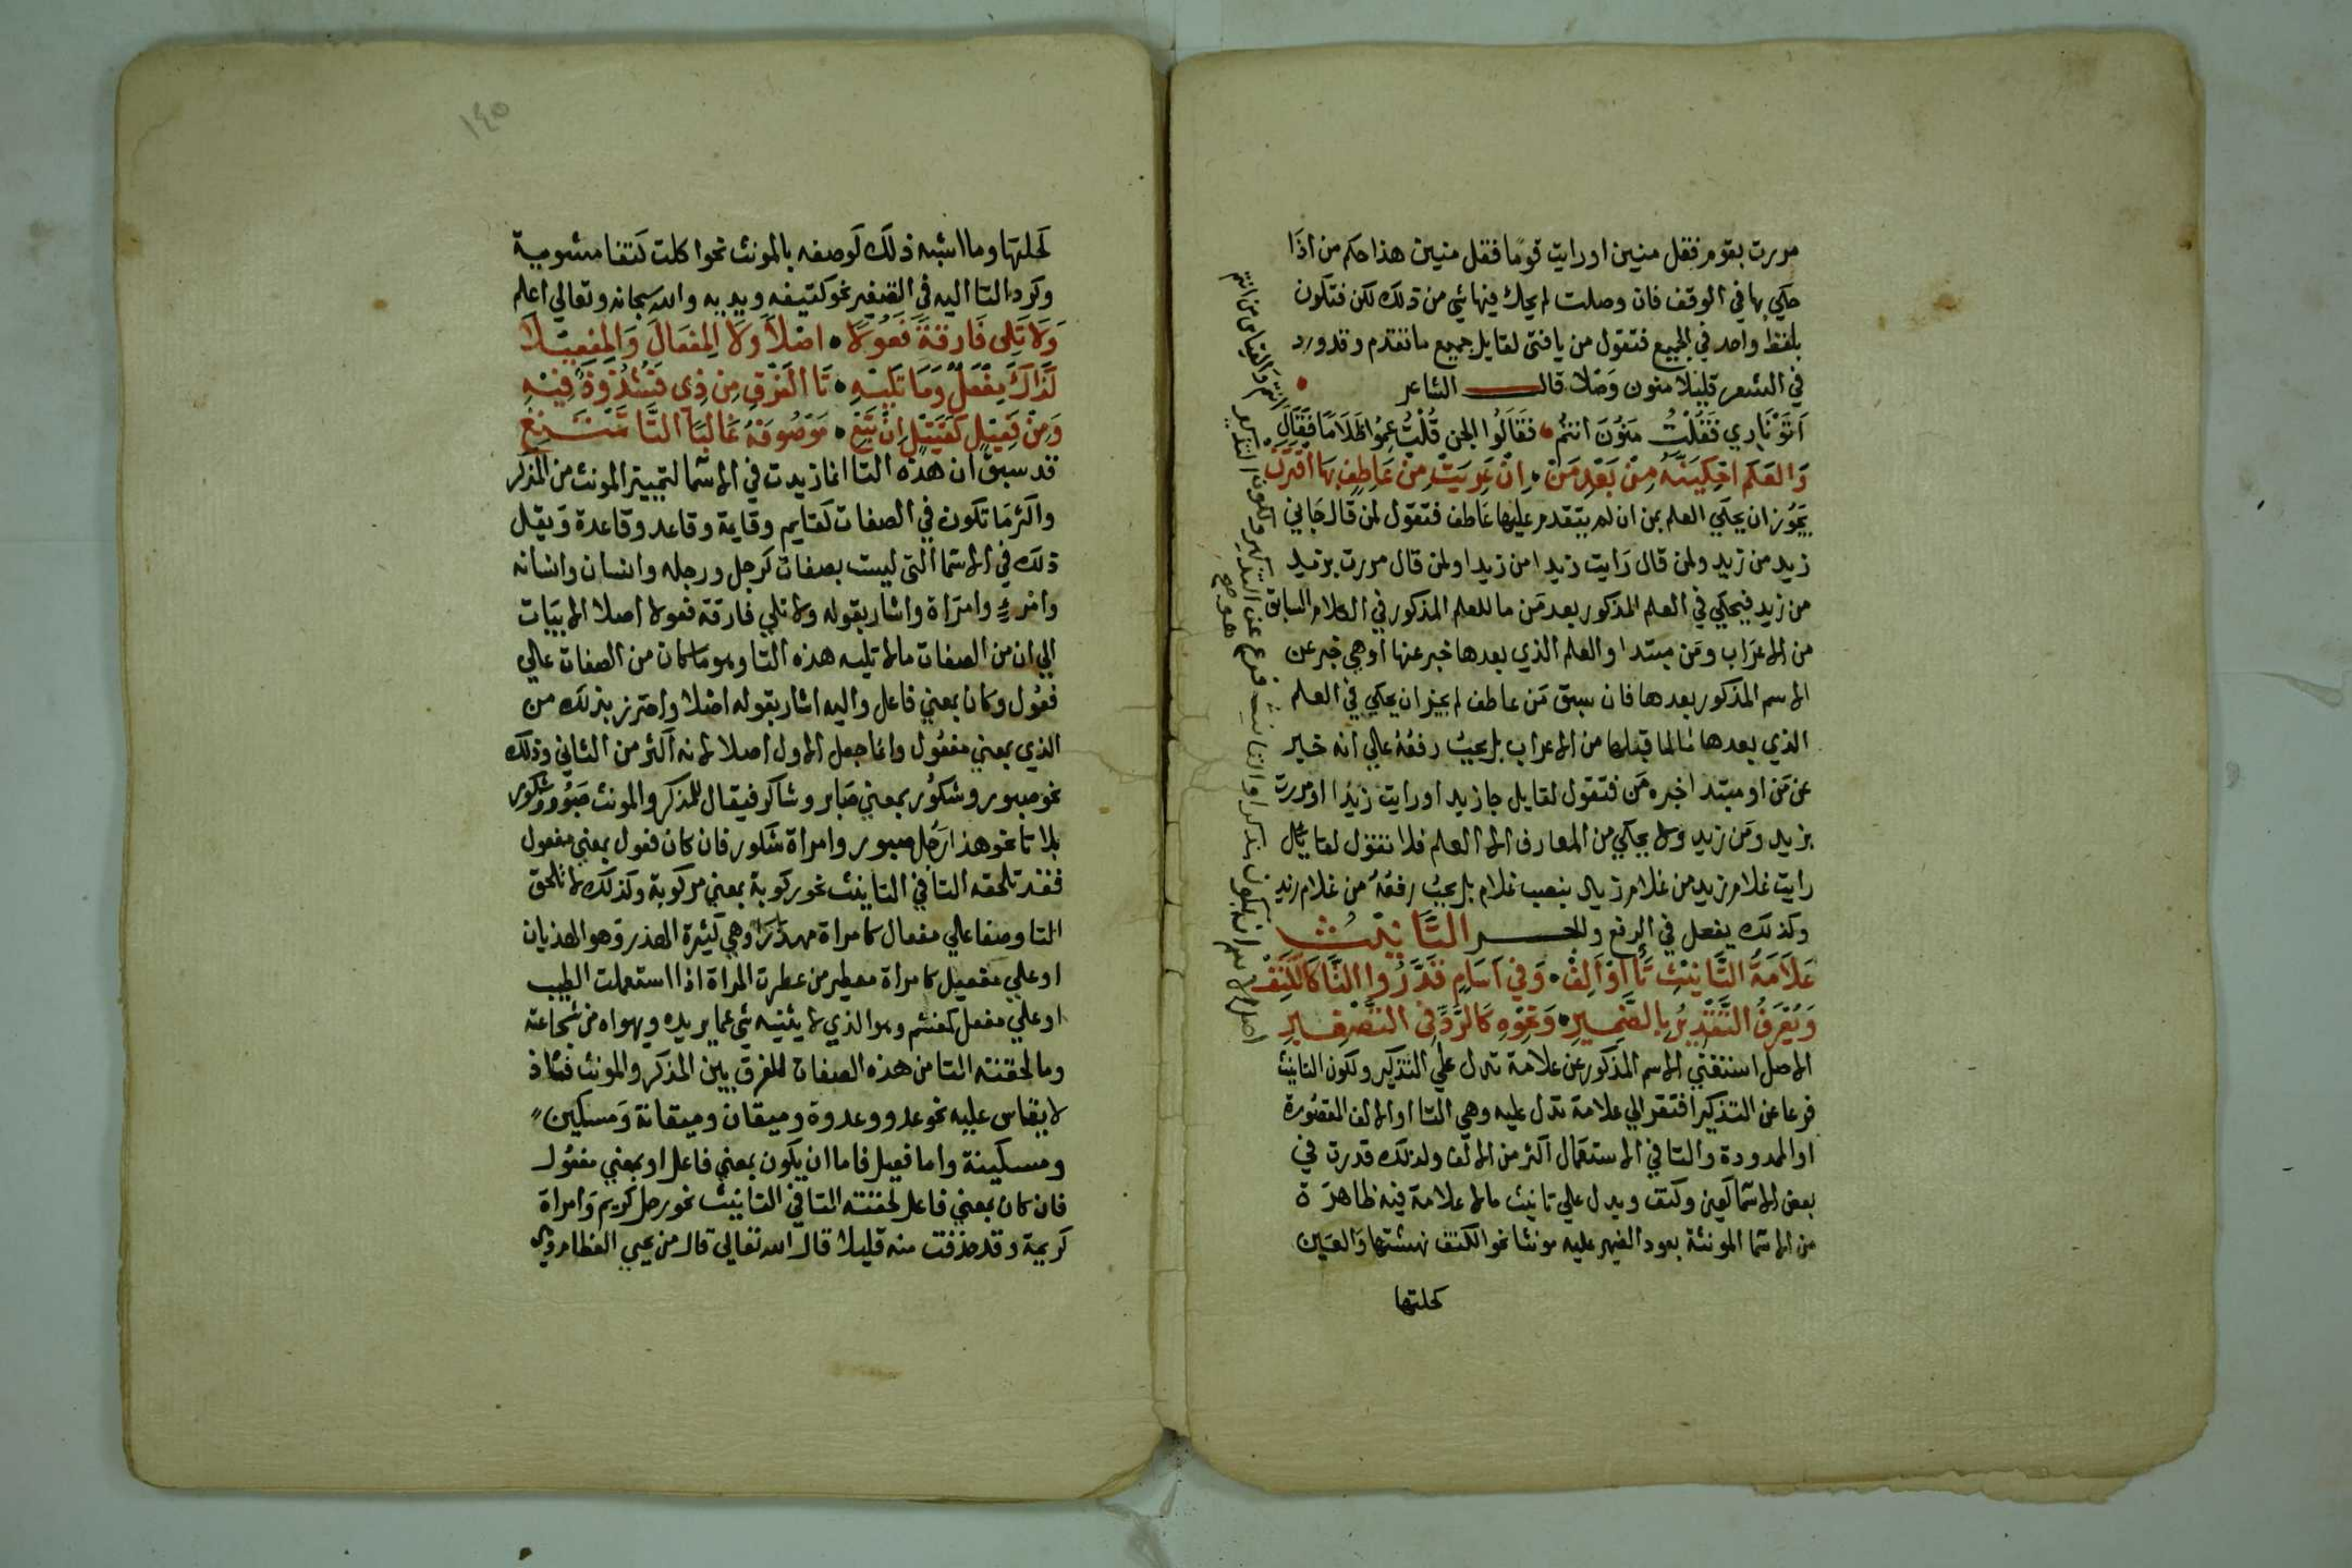 مررت بقوم فقل منين او رايت قوما فقل منين هذا حكم من اذا
حكي بها في الوقف فان وصلت لم يحك فيها شي من ذلك لكن فتكون
بلفظ واحد في الجميع فتقول من يا فتى لقايل جميع ما تقدم وقد ورد
في الشعر قليلا منون وصلا قال الشاعر
اتو ناري فقلت منون انتم فقالوا الجن قلت عموا ظلاما
والعلم احكينه من بعد من ان عريت من عاطف بها اقترن
يجوز ان يحكي العلم بمن ان لم يتقدم عليها عاطف فتقول لمن قال جاني
زيد من زيد ولمن قال رايت زيدا من زيدا ولمن قال مررت بزيد
من زيد فيحكي في العلم المذكور بعد من ما للعلم المذكور في الكلام السابق
من الاعراب ومن مبتدا والعلم الذي بعدها خبر عنها او هي خبر عن
الاسم المذكور بعدها فان سبق من عاطف لم يجز ان يحكي في العلم
الذي بعدها ما لما قبلها من الاعراب بل يجب رفعه علي انه خبر
عن من او مبتدا خبره من فتقول لقايل جا زيد او رايت زيدا او مررت
بزيد ومن زيد ولا يحكي من المعارف الا العلم فلا تقول لقايل
رايت غلام زيد من غلام زيد بنصب غلام بل يجب رفعه من غلام زيد
وكذلك يفعل في الرفع والجر التانيث
علامة التانيث تا او الف وفي اسام قدروا التا كالكتف
ويعرف التقدير بالضمير ونحوه كالرد في التصغير
الاصل استغني الاسم المذكور عن علامة تدل علي التذكير ولكون التانيث
فرعا عن التذكير افتقر الي علامة تدل عليه وهي التا او الالف المقصورة
او الممدودة والتا في الاستعمال اكثر من الالف ولذلك قدرت في
بعض الاسما كعين وكتف ويدل علي تانيث ما لا علامة فيه ظاهرة
من الاسما المونثة بعود الضمير عليه مونثا نحو الكتف نهشتها والعين
كحلتها
١٤٥
كحلتها وما اشبه ذلك كوصفه بالمونث نحو اكلت كتفا مشوية
وكرد التا اليه في التصغير نحو كتيفه ويديه والله سبحانه وتعالي اعلم
ولا تلي فارقة فعولا اصلا ولا المفعال والمفعيلا
كذاك مفعل وما تليه تا الفرق من ذي فشذوذ فيه
ومن فعيل كقتيل ان تبع موصوفه غالبا التا تمتنع
قد سبق ان هذه التا انما زيدت في الاسما لتمييز المونث من المذكر
واكثر ما تكون في الصفات كقايم وقايمة وقاعد وقاعدة ويقل
ذلك في الاسما التي ليست بصفات كرجل ورجله وانسان وانسانه
وامرء وامراة واشار بقوله ولا تلي فارقة فعولا اصلا الابيات
الي ان من الصفات ما لا تليه هذه التا وهو ما كان من الصفات علي
فعول وكان بمعني فاعل واليه اشار بقوله اصلا واحترز بذلك من
الذي بمعني مفعول وانما جعل الاول اصلا لانه اكثر من الثاني وذلك
نحو صبور وشكور بمعني صابر وشاكر فيقال للمذكر والمونث صبور وشكور
بلا تا نحو هذا رجل صبور وامراة شكور فان كان فعول بمعني مفعول
فقد تلحقه التا في التانيث نحو ركوبة بمعني مركوبة وكذلك لا تلحق
التا وصفا علي مفعال كامراة مهذار وهي كثيرة الهذر وهو الهذيان
او علي مفعيل كامراة معطير من عطرت المراة اذا استعملت الطيب
او علي مفعل كمغشم وهو الذي لا يثنيه شي عما يريده ويهواه من شجاعته
وما لحقته التا من هذه الصفات للفرق بين المذكر والمونث فشاذ
لا يقاس عليه نحو عدو وعدوة وميقان وميقانة ومسكين
ومسكينة واما فعيل فاما ان يكون بمعني فاعل او بمعني مفعول
فان كان بمعني فاعل لحقته التا في التانيث نحو رجل كريم وامراة
كريمة وقد حذفت منه قليلا قال الله تعالي قال من يحيي العظام وهي